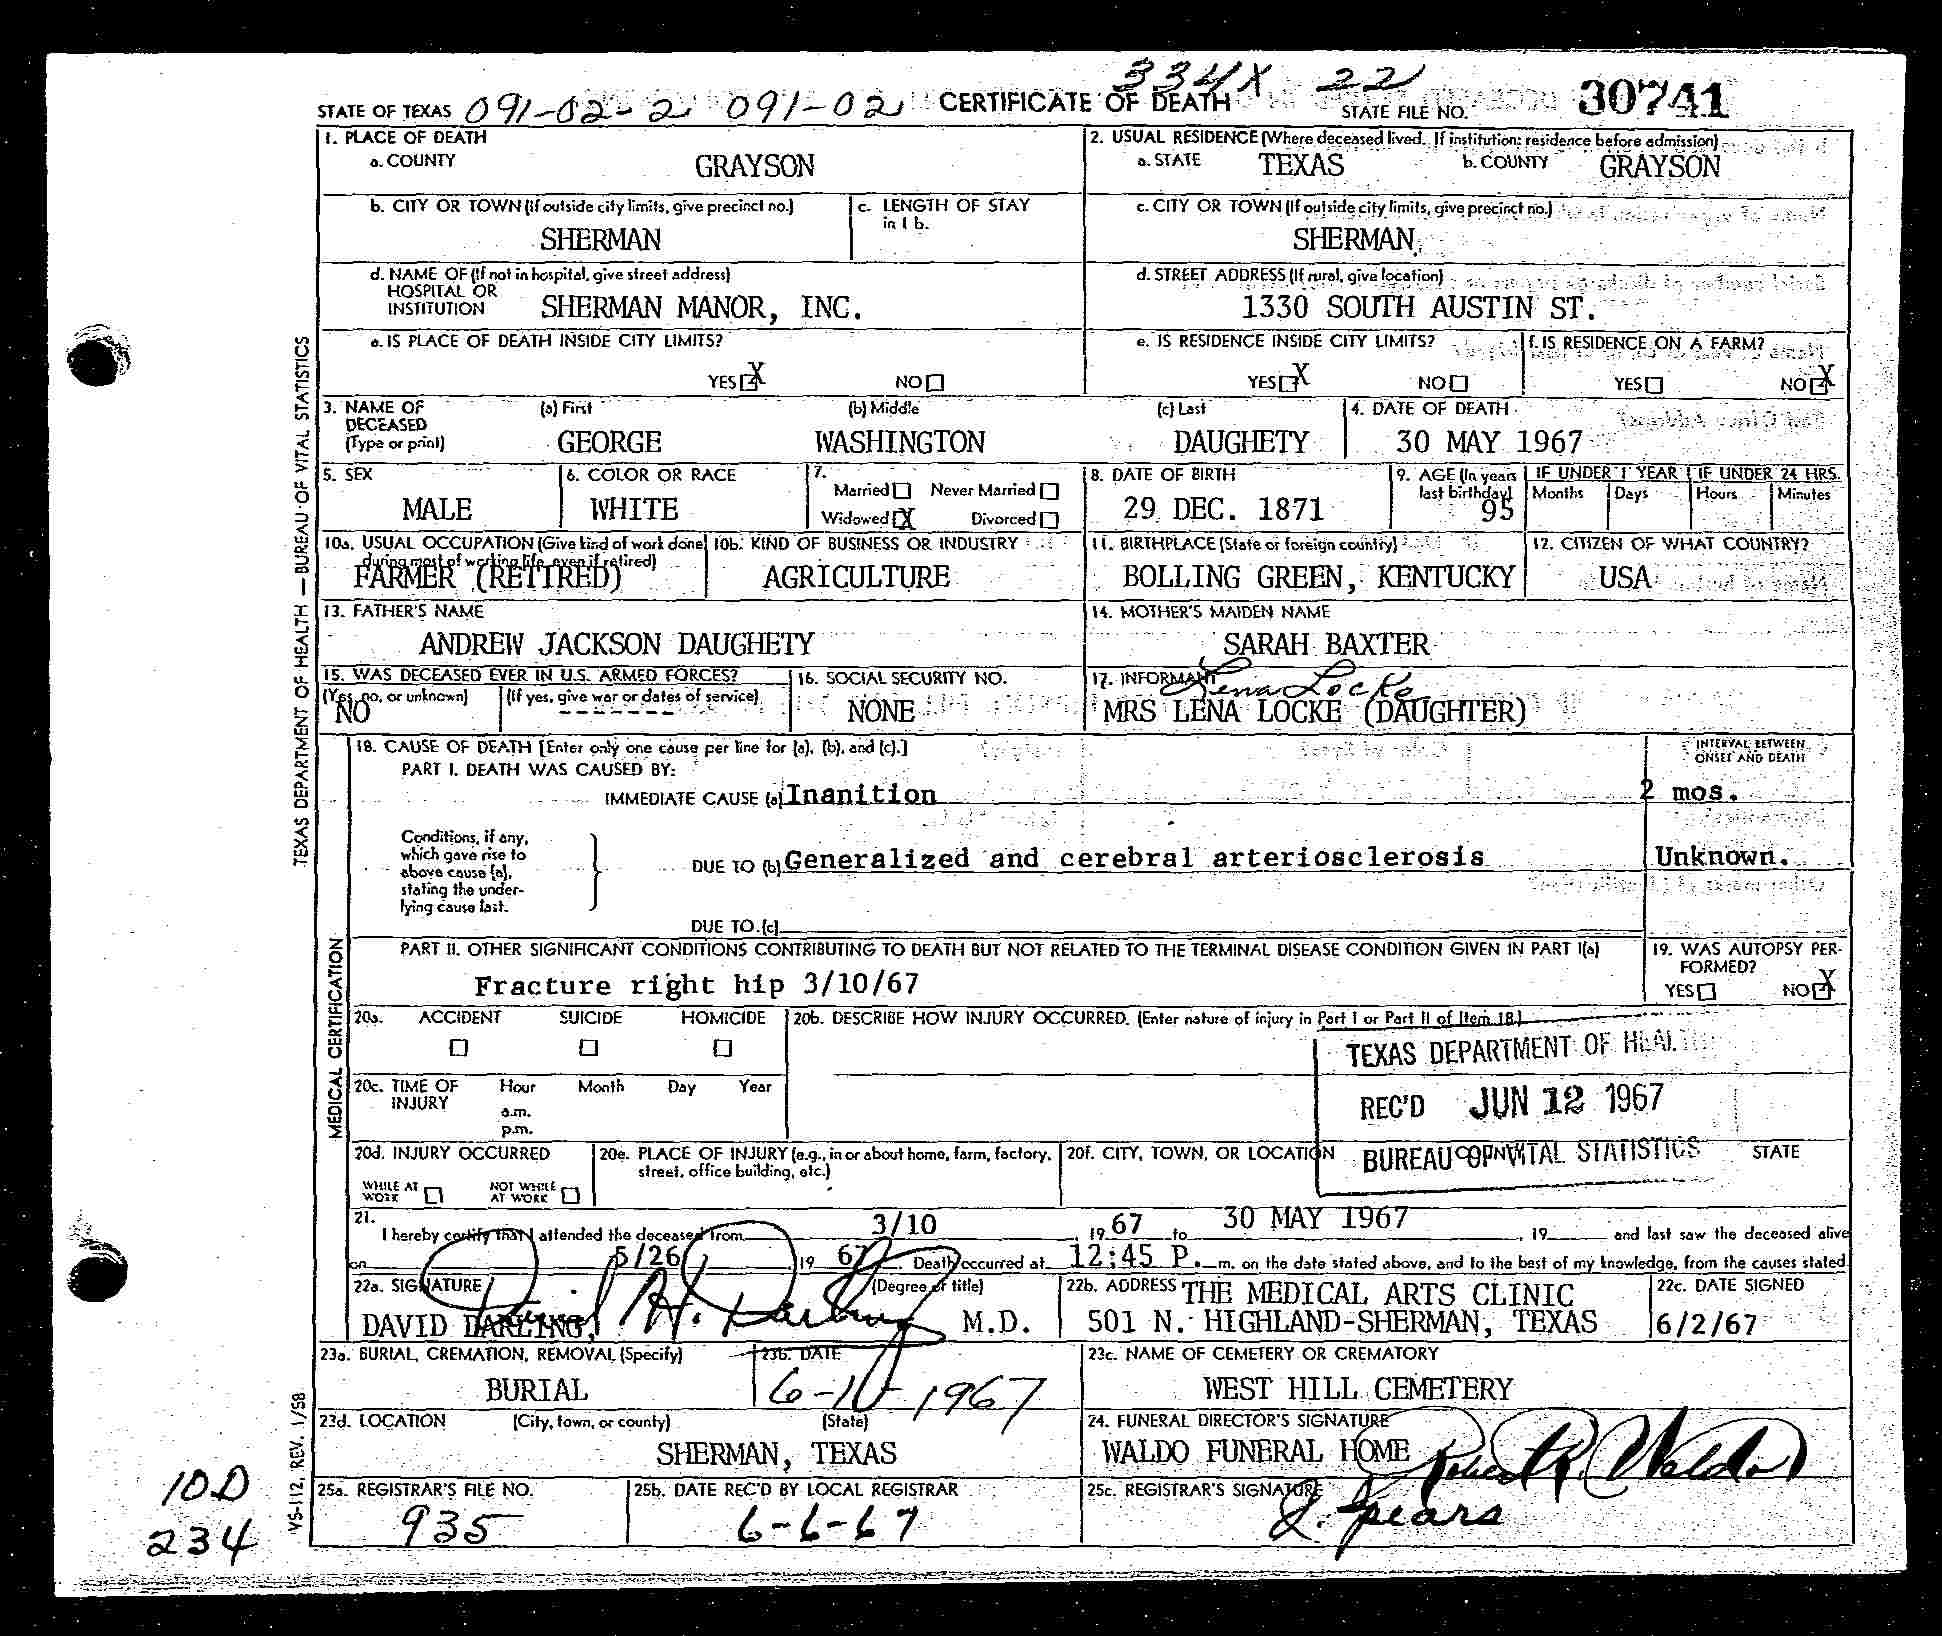 334X 22
STATE OF TEXAS 091-02-2 091-02 CERTIFICATE OF DEATH STATE FILE NO. 30741
1. PLACE OF DEATH
a. COUNTY
GRAYSON
2. USUAL RESIDENCE (Where deceased lived. If institution: residence before admission)
a. STATE TEXAS b. COUNTY GRAYSON
b. CITY OR TOWN (If outside city limits, give precinct no.)
SHERMAN
c. LENGTH OF STAY
in 1 b.
c. CITY OR TOWN (If outside city limits, give precinct no.)
SHERMAN
d. NAME OF (If not in hospital, give street address)
HOSPITAL OR
INSTITUTION SHERMAN MANOR, INC.
d. STREET ADDRESS (If rural, give location)
1330 SOUTH AUSTIN ST.
e. IS PLACE OF DEATH INSIDE CITY LIMITS?
YES X NO
e. IS RESIDENCE INSIDE CITY LIMITS?
YES X NO
f. IS RESIDENCE ON A FARM?
YES NO X
3. NAME OF
DECEASED
(Type or print)
(a) First (b) Middle (c) Last
GEORGE WASHINGTON DAUGHETY
4. DATE OF DEATH
30 MAY 1967
5. SEX
MALE
6. COLOR OR RACE
WHITE
7.
Married Never Married
Widowed X Divorced
8. DATE OF BIRTH
29 DEC. 1871
9. AGE (In years
last birthday)
95
IF UNDER 1 YEAR IF UNDER 24 HRS.
Months Days Hours Minutes
10a. USUAL OCCUPATION (Give kind of work done
during most of working life, even if retired)
FARMER (RETIRED)
10b. KIND OF BUSINESS OR INDUSTRY
AGRICULTURE
11. BIRTHPLACE (State or foreign country)
BOLLING GREEN, KENTUCKY
12. CITIZEN OF WHAT COUNTRY?
USA
13. FATHER'S NAME
ANDREW JACKSON DAUGHETY
14. MOTHER'S MAIDEN NAME
SARAH BAXTER
15. WAS DECEASED EVER IN U.S. ARMED FORCES?
(Yes, no, or unknown) (If yes, give war or dates of service)
NO --------
16. SOCIAL SECURITY NO.
NONE
17. INFORMANT Lena Locke
MRS LENA LOCKE (DAUGHTER)
18. CAUSE OF DEATH [Enter only one cause per line for (a), (b), and (c).]
PART I. DEATH WAS CAUSED BY:
INTERVAL BETWEEN
ONSET AND DEATH
IMMEDIATE CAUSE (a) Inanition 2 mos.
Conditions, if any,
which gave rise to
above cause (a),
stating the under-
lying cause last.
DUE TO (b) Generalized and cerebral arteriosclerosis Unknown.
DUE TO (c)
PART II. OTHER SIGNIFICANT CONDITIONS CONTRIBUTING TO DEATH BUT NOT RELATED TO THE TERMINAL DISEASE CONDITION GIVEN IN PART I(a)
Fracture right hip 3/10/67
19. WAS AUTOPSY PER-
FORMED?
YES NO X
20a. ACCIDENT SUICIDE HOMICIDE
20b. DESCRIBE HOW INJURY OCCURRED. (Enter nature of injury in Part I or Part II of Item 18.)
TEXAS DEPARTMENT OF HEALTH
REC'D JUN 12 1967
BUREAU OF VITAL STATISTICS
20c. TIME OF
INJURY
Hour Month Day Year
a.m.
p.m.
20d. INJURY OCCURRED
WHILE AT
WORK
NOT WHILE
AT WORK
20e. PLACE OF INJURY (e.g., in or about home, farm, factory,
street, office building, etc.)
20f. CITY, TOWN, OR LOCATION COUNTY STATE
21.
I hereby certify that I attended the deceased from 3/10, 1967 to 30 MAY 1967, 19 and last saw the deceased alive
on 5/26 19 67. Death occurred at 12:45 P. m. on the date stated above, and to the best of my knowledge, from the causes stated.
22a. SIGNATURE (Degree or title)
David H. Darling
DAVID DARLING, M.D.
22b. ADDRESS THE MEDICAL ARTS CLINIC
501 N. HIGHLAND-SHERMAN, TEXAS
22c. DATE SIGNED
6/2/67
23a. BURIAL, CREMATION, REMOVAL (Specify)
BURIAL
23b. DATE
1967
23c. NAME OF CEMETERY OR CREMATORY
WEST HILL CEMETERY
23d. LOCATION (City, town, or county) (State)
SHERMAN, TEXAS
24. FUNERAL DIRECTOR'S SIGNATURE
WALDO FUNERAL HOME Robert R. Waldo
25a. REGISTRAR'S FILE NO.
935
25b. DATE REC'D BY LOCAL REGISTRAR
6-6-67
25c. REGISTRAR'S SIGNATURE
J. Spears
TEXAS DEPARTMENT OF HEALTH — BUREAU OF VITAL STATISTICS
MEDICAL CERTIFICATION
VS-112, REV. 1/58
10D
234